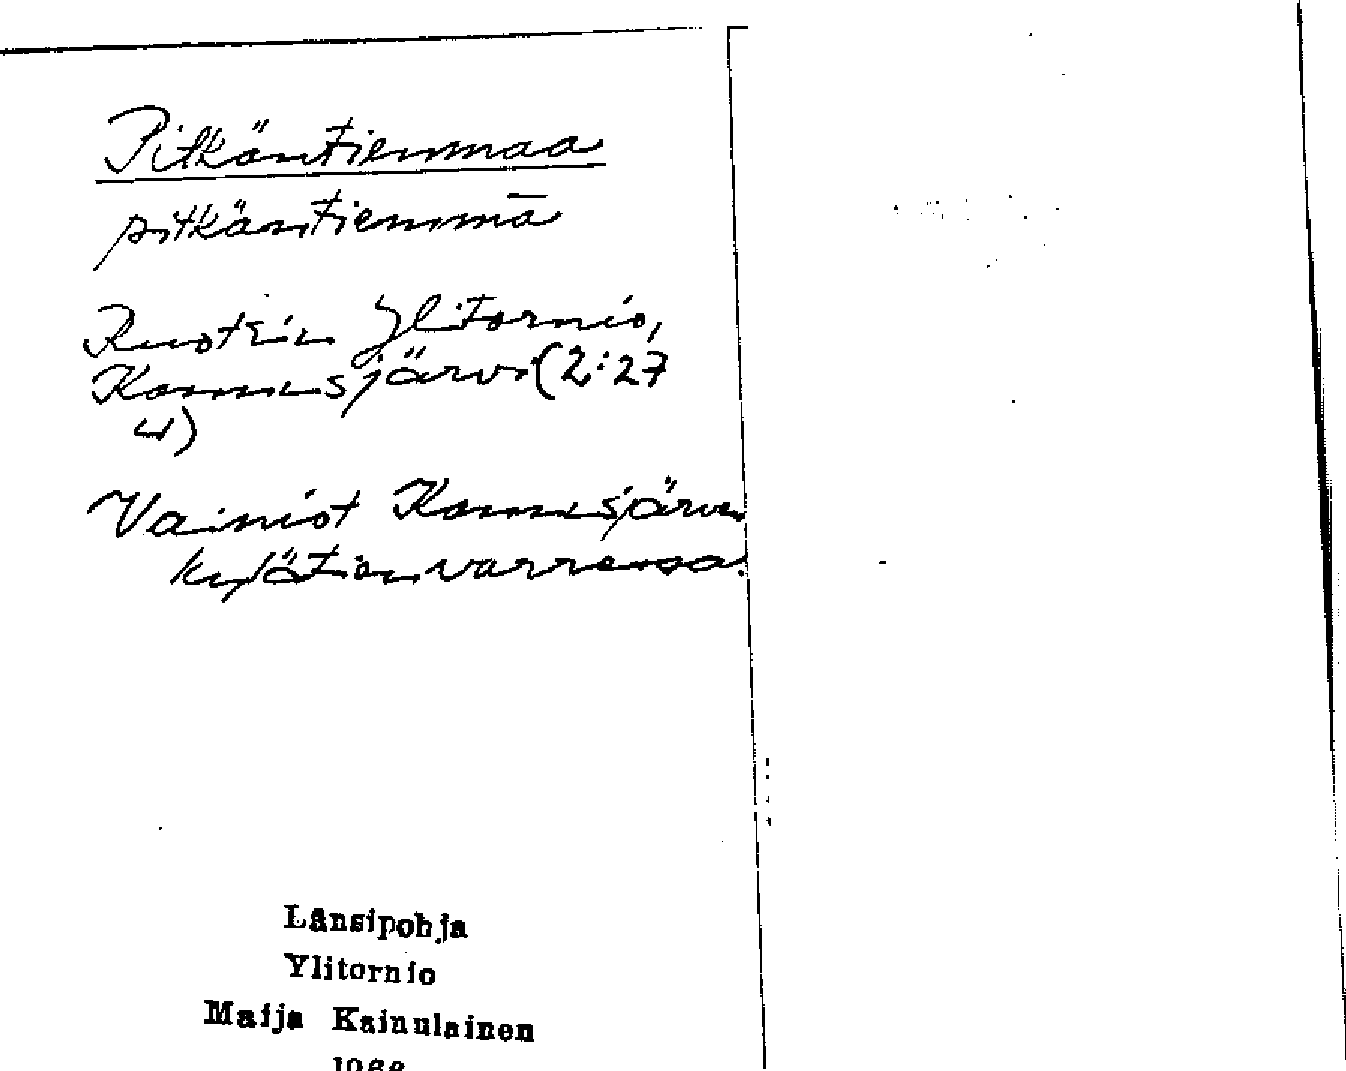 Pitkäntienmaa
pitkäntiemmā
Ruotsin Ylitornio,
Kannusjärvi (2:27
4)
Vainiot Kannusjärven
kylätien varressa.
Länsipohja
Ylitornio
Maija Kainulainen